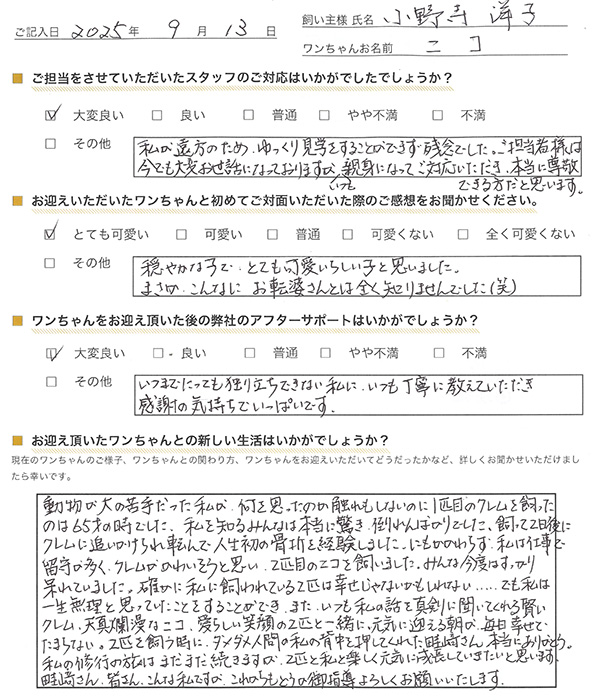 ご記入日 2025年 9月 13日
飼い主様氏名 小野寺 洋子
ワンちゃんお名前 ニコ
■ ご担当をさせていただいたスタッフのご対応はいかがでしたでしょうか？
☑ 大変良い □ 良い □ 普通 □ やや不満 □ 不満
□ その他
私が遠方のため、ゆっくり見学をすることができず残念でした。ご担当者様は
今でも大変お世話になっておりますが、親身になってご対応いただき、本当に尊敬
いつも
できる方だと思います。
■ お迎えいただいたワンちゃんと初めてご対面いただいた際のご感想をお聞かせください。
☑ とても可愛い □ 可愛い □ 普通 □ 可愛くない □ 全く可愛くない
□ その他
穏やかな子で、とても可愛いらしい子と思いました。
まさか、こんなに お転婆さんとは全く知りませんでした(笑)
■ ワンちゃんをお迎え頂いた後の弊社のアフターサポートはいかがでしょうか？
☑ 大変良い □ 良い □ 普通 □ やや不満 □ 不満
□ その他
いつまでたっても独り立ちできない私に、いつも丁寧に教えていただき
感謝の気持ちでいっぱいです。
■ お迎え頂いたワンちゃんとの新しい生活はいかがでしょうか？
現在のワンちゃんのご様子、ワンちゃんとの関わり方、ワンちゃんをお迎えいただいてどうだったかなど、詳しくお聞かせいただけまし
たら幸いです。
動物が大の苦手だった私が、何を思ったのか触れもしないのに1匹目のクレムを飼った
のは65才の時でした、私を知るみんなは本当に驚き、倒れんばかりでした、飼って2日後に
クレムに追いかけられ転んで人生初の骨折を経験しました。にもかかわらず、私は仕事で
留守が多く、クレムがかわいそうと思い、2匹目のニコを飼いました。みんな今度はすっかり
呆れていました。確かに私に飼われている2匹は幸せじゃないかもしれない……でも私は
一生無理と思っていたことをすることができ、また、いつも私の話を真剣に聞いてくれる賢い
クレム、天真爛漫なニコ、愛らしい笑顔の2匹と一緒に、元気に迎える朝が、毎日幸せで
たまらない。2匹を飼う時に、ダメダメ人間の私の背中を押してくれた畦崎さん、本当にありがとう。
私の修行の旅はまだまだ続きますが、2匹と私と楽しく元気に成長していきたいと思います。
畦崎さん、皆さん、こんな私ですが、これからもどうか御指導よろしくお願いいたします。